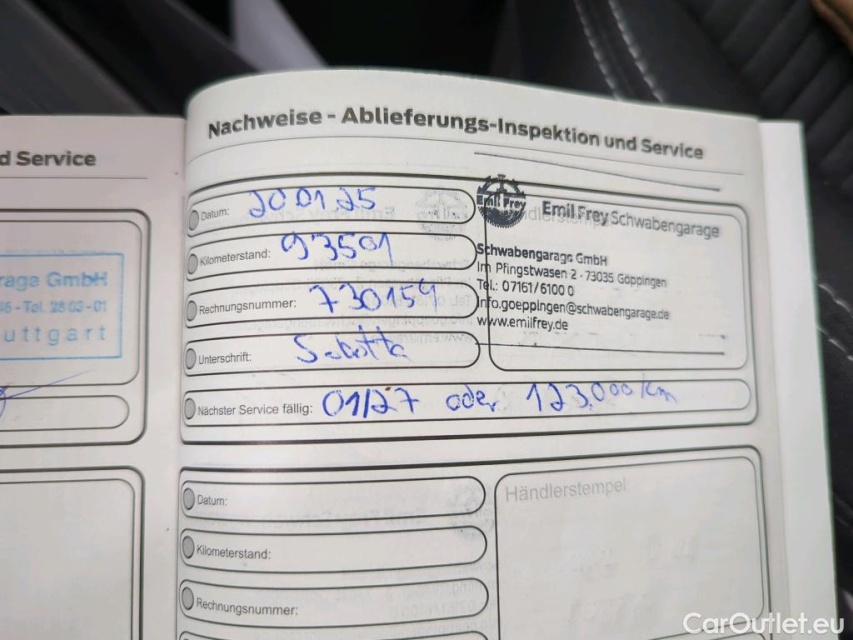 d Service
arage GmbH
46 - Tel. 28 03 - 01
uttgart
Nachweise - Ablieferungs-Inspektion und Service
Datum: 20 01 25
Kilometerstand: 93501
Rechnungsnummer: 730154
Unterschrift:
Nächster Service fällig: 01/27 oder 123.000 km
Emil Frey
Emil Frey Schwabengarage
Schwabengarage GmbH
Im Pfingstwasen 2 - 73035 Göppingen
Tel.: 07161/6100 0
info.goeppingen@schwabengarage.de
www.emilfrey.de
Datum:
Kilometerstand:
Rechnungsnummer:
Händlerstempel
CarOutlet.eu